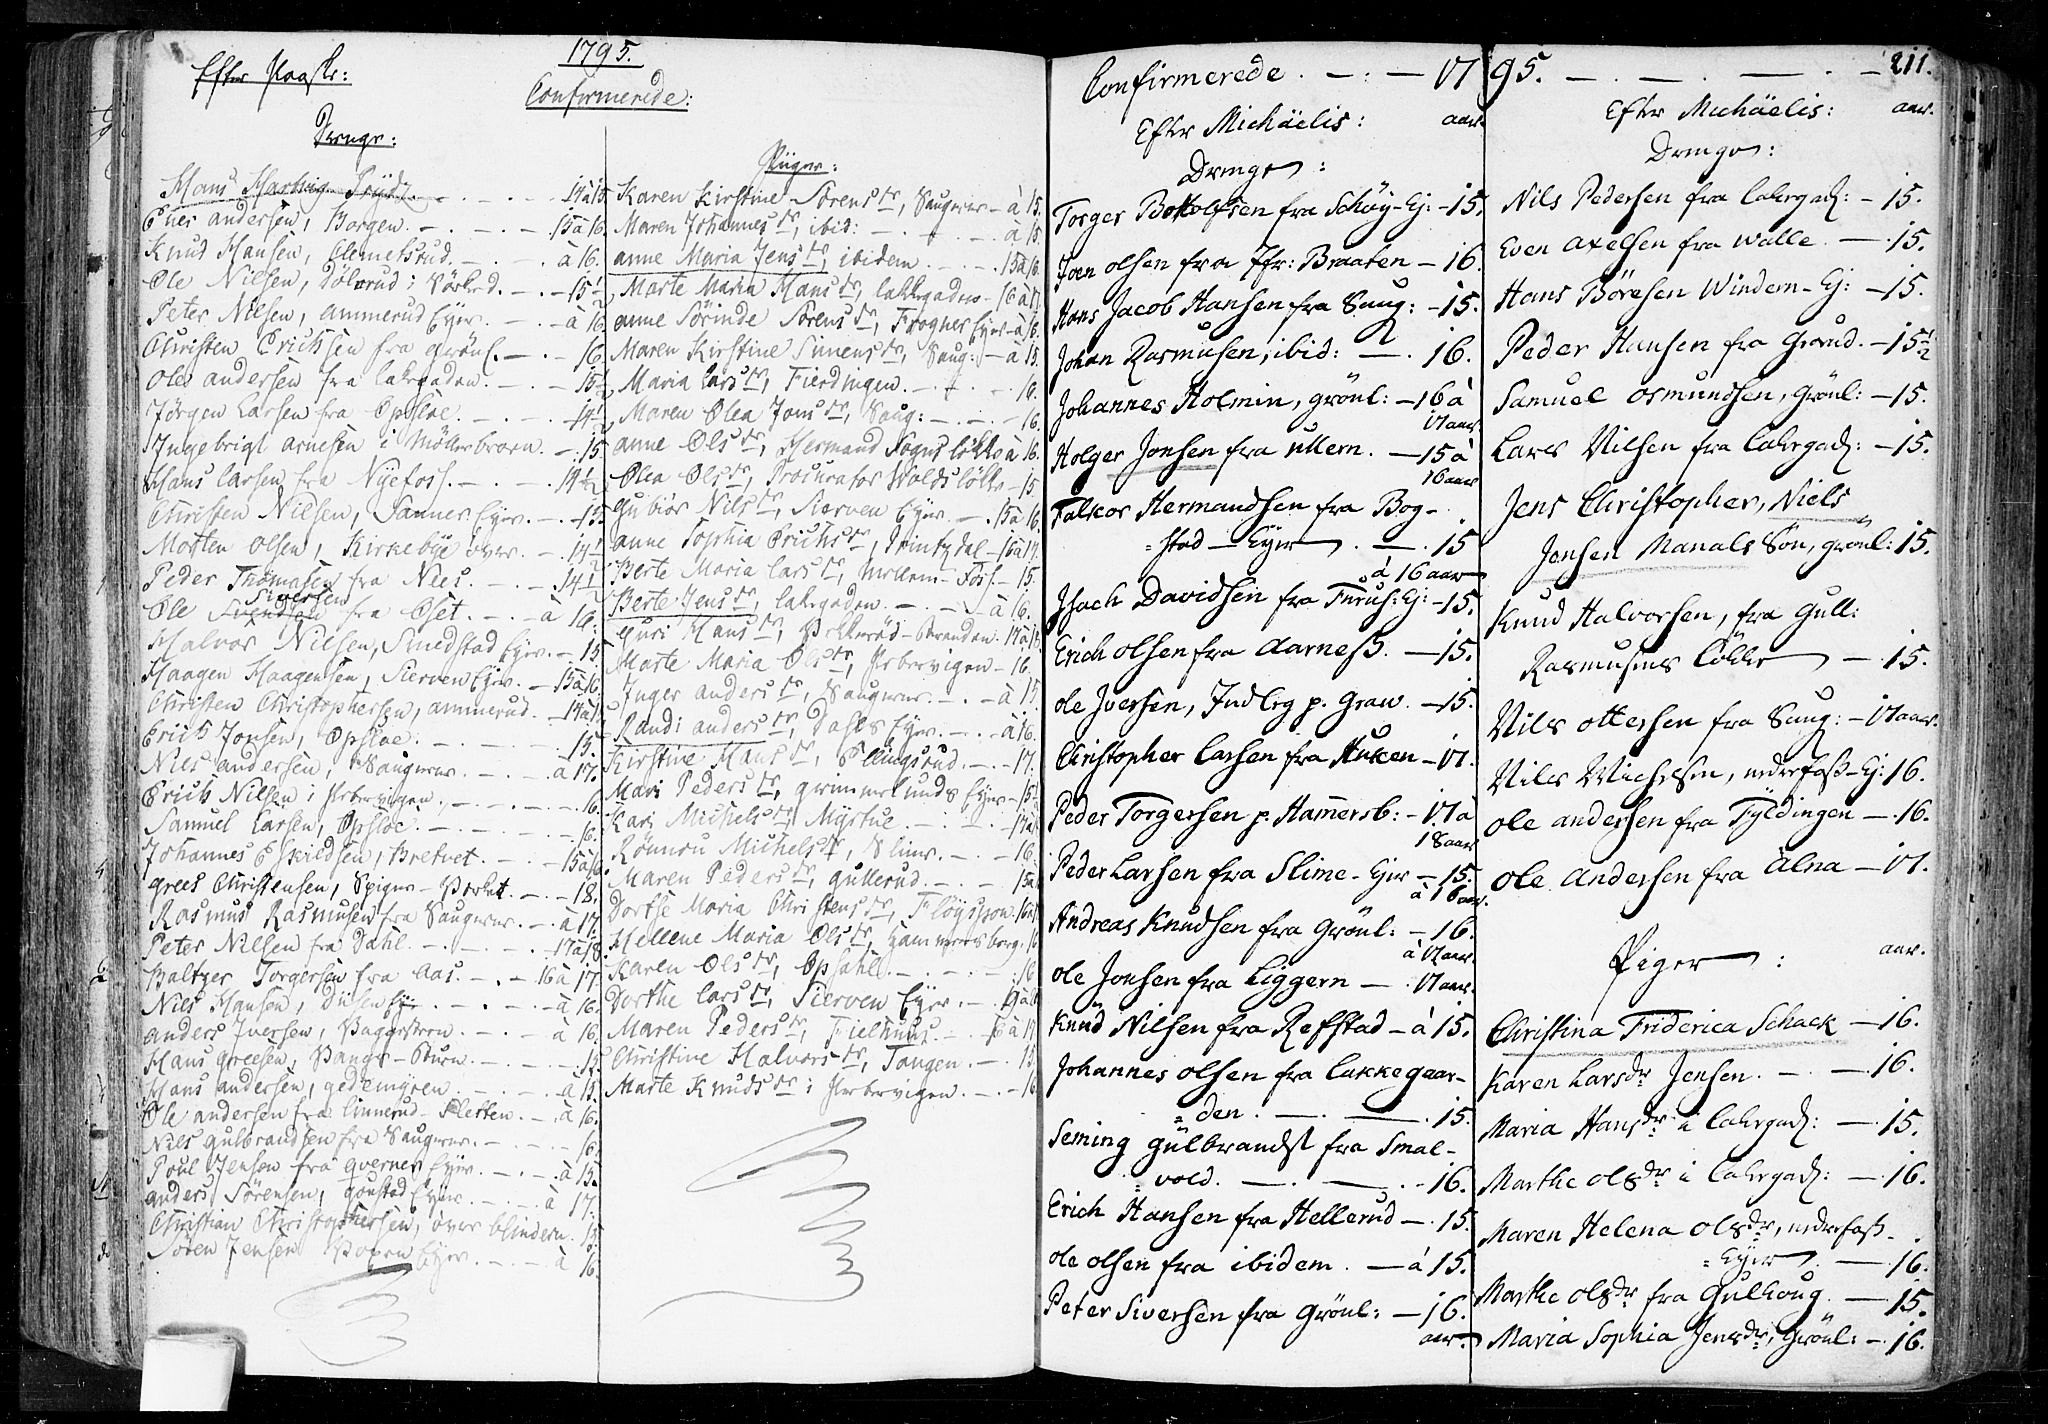 Efter Paaske:
1795.
Confirmerede:
Drenge:
Hans Hartvig Prydz 14 à 15.
Ener andersen, Borgen. 15 à 16.
Knud Hansen, Clemetsrud. à 16.
Ole Nilsen, Dölerud i 15½
Peter Nilsen, ammerud Eyer. à 16.
Christen Erichsen fra grönl. 16.
Ole andersen fra lakegaden. 15½
Jörgen Larsen fra Opsloe. 14½
Ingebrigt arnesen i Möllerbroen. 15
Hans larsen fra Nyefoss. 14½
Christen Nilsen, Sanner Eyer. 15.
Morten olsen, Kirkebye över. 14½
Peder Thomasen fra Nies. 14½
Siversen
Ole Svendsen fra Öset. à 16.
Halvor Nilsen, Smedstad Eyer. 15
Haagen Haagensen, Sierven Eyer. 15 à 16.
Christen Christophersen, ammerud. 14 à 15
Erich Jonsen, Opsloe. 15.
Nils andersen, Saugerne. à 17.
Erich Nilsen i Peberviigen. 16.
Samuel Larsen, Opsloe. 16.
Johannes Eskildsen, Bretvet. 15 à 16
grees Christensen, Spiger-Verket. 18.
Rasmus Rasmusen fra Saugerne. à 17.
Peter Nilsen fra Dahl. 17 à 18
Baltzer Torgersen fra Aas. 16 à 17.
Nils Hansen, Disen Eyer à 16.
anders Iversen, Baggesteen. à 16.
Hans greesen, Vange-Stuen. 15.
Hans andersen, gedemyren. à 15.
Ole andersen fra linnerud-Sletten. à 16.
Nils gulbrandsen fra Saugerne. 16.
Poul Jensen fra qverner Eyer. à 15.
anders Sörensen, goustad Eyer. à 17.
Christian Christophersen, över blindern. 15.
Sören Jensen Voxen Eyer. à 16.
Piiger:
Karen Kirstine Sörensdr, Saugerne à 15.
Maren Johannesdr, ibid: à 15
anne Maria Jensdr, ibidem 15 à 16.
Marte Maria Hansdr, lakkegaden 16 à 17
anne Sörinde Sörensdr, Frogner Eyer à 16.
Maren Kirstine Simensdr, Saug: à 15.
Maria Larsdr, Fierdingen. 16.
Maren Olea Jonsdr, Saug: 16.
anne Olsdr, Hermand Foguslökke à 16.
Olea Olsdr, Procurator Woldslökke 15.
gubiör Nilsdr, Sierven Eyer 15 à 16.
anne Sophia Erichsdr, Prinsdal 16 à 17.
Berte Maria larsdr, Mellem-Foss 15.
Berte Jensdr, lakegaden. à 16.
guri Hansdr, 17 à 18.
Marte Maria Olsdr, Peberviigen 16.
Inger andersdr, Saugerne. à 15
Randi andersdr, Dahls Eyer. à 16.
Kirstine Hansdr, Ellingsrud. 17.
Mari Pedersdr, grimmelunds Eyer 15½
Kari Michelsdr, Myrhue. 17 à
Rönnou Michelsdr, Slime. 16.
Maren Pedersdr, gullerud. 15 à
Dorthe Maria Christensdr, Flöyspon. 16 à
Hellene Maria Olsdr, Hammersborg. 16
Karen Olsdr, Opsahl. 16
Dorthe Larsdr, Sierven Eyer. 19 à
Maren Pedersdr, Fielhuus. 16 à 17
Christine Halvorsdr, Tangen. 15.
Marte Knudsdr i Peberviigen. 16
Confirmerede 1795. 211.
Efter Michäelis: aar.
Drenge:
Torger Bottolfsen fra Schöy-Ej: 15.
Joen olsen fra Ffr: Braaten 16.
Hans Jacob Hansen fra Saug: 15.
Johan Rasmusen, ibid: 16.
Johannes Holmin, grönl: 16 à
17 aar.
Holger Jonsen fra ullern. 15 à
16 aar
Falkor Hermandsen fra Bog-
=stad Eyer 15
à 16 aar
Isach Davidsen fra Furus: Ej: 15.
Erich olsen fra Aarness. 15.
ole Iversen, Indleg p. Graw. 15.
Christopher Larsen fra Huken 17.
Peder Torgersen p. Hammersb: 17 à
18 aar
Peder Larsen fra Slime-Ejer 15.
à 16 aar.
Andreas Knudsen fra Grönl: 16.
à 17 aar.
ole Jonsen fra Liggern 17 aar.
Knud Nilsen fra Refstad à 15.
Johannes olsen fra Lakkegaar-
=den. 15.
Seming gulbrands: fra Smal-
=vold. 16.
Erich Hansen fra Hellerud 15.
ole olsen fra ibidem. à 15.
Peter Siversen fra Grönl: 16.
aar.
Efter Michäelis: aar.
Drenge:
Nils Pedersen fra Lakegad: 15.
Even Axelsen fra Walle. 15.
Hans Böresen Windern-Ej: 15.
Peder Hansen fra Grorud. 15½
Samuel osmundsen, Grönl: 15.
Lars Nilsen fra Lakegad: 15.
Jens Christopher, Niels
Jensen Manals Sön, grönl: 15.
Knud Halvorsen, fra Gull:
Rasmusens Lökke 15.
Nils ottersen fra Saug: 17 aar.
Nils Michelsen, nedrefoss-Ej: 16.
ole andersen fra Fyldingen 16.
ole Andersen fra Alna 17.
Piger: aar.
Christina Friderica Schack 16.
Karen Larsdr Jensen. 16.
Maria Hansdr i Lakegad: 15.
Marthe olsdr i Lakegad: 16.
Maren Helena olsdr, nedrefoss-
=Ejer 16.
Marthe olsdr fra Gulhoug 15.
Maria Sophia Jensdr, Grönl: 16.